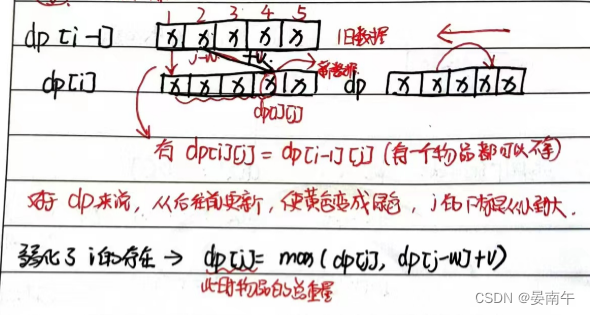 1 2 3 4 5
dp[i-1] x x x x x 旧数据
j-w +v 新数据
dp[i] x x x x x dp x x x x x
dp[i][j]
有 dp[i][j] = dp[i-1][j] (每一个物品都可以不拿)
对于 dp 来说, 从后往前更新, 使黄色变成 色, j 的下标是从 到大.
弱化了 i 的存在 → dp[j] = max(dp[j], dp[j-w]+v)
此时物品的总重量
CSDN @晏南午